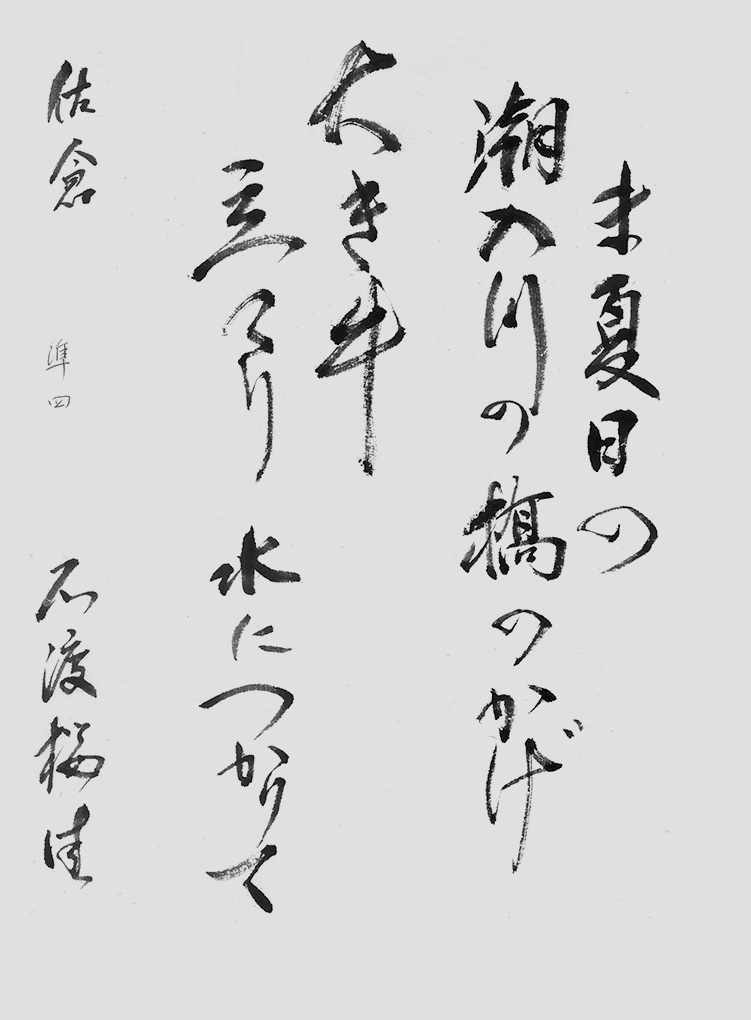 ま夏日の
潮入川の橋のかげ
大き牛
立てり水につかりて
佐倉 準四 石渡桜佳